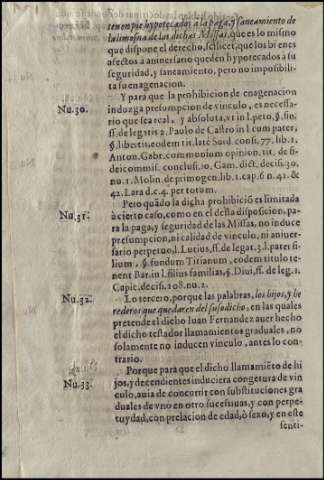 ten en pie hypotecados a la paga, y saneamiento de
la limosna de las dichas Missas, que es lo mismo
que dispone el derecho, scilicet, que los bienes
afectos à aniuersario queden hypotecados à su
seguridad, y saneamiento, pero no impossibili-
ta su enagenacion.
Nu.30.
Y para que la prohibicion de enagenacion
induzga presumpcion de vinculo, es necessa-
rio que sea real, y absoluta, ex in l. peto. §. fin.
ff. de legatis 2. Paulo de Castro in l. cum pater,
§. libertis, eodem tit. late Surd. cons. 77. lib. 1.
Anton. Gabr. communium opinion. tit. de fi-
deicommiss. conclus. 10. Gam. dict. decis. 30.
nu. 1. Molin. de primogen. lib. 1. cap. 6. n. 41. &
42. Lara d. c. 4. per totum.
Nu.31.
Pero quãdo la dicha prohibiciõ es limitada
à cierto caso, como en el desta disposicion, pa-
ra la paga, y seguridad de las Missas, no induce
presumpcion, ni calidad de vinculo, ni aniuer-
sario perpetuo, l. Lutius, ff. de legat. 3. l. pater fi-
lium, §. fundum Titianum, eodem titulo te-
nent Bar. in l. filius familias, §. Diui, ff. de leg. 1.
Capic. decis. 108. nu. 2.
Nu.32.
Lo tercero, porque las palabras, los hijos, y he
rederos que quedaren del susodicho, en las quales
pretende el dicho Iuan Fernandez auer hecho
el dicho testador llamamientos graduales, no
solamente no inducen vinculo, antes lo con-
trario.
Nu.33.
Porque para que el dicho llamamiẽto de hi
jos, y decendientes induciera congetura de vin
culo, auia de concurrir con substituciones gra
duales de vno en otro sucessiuas, y con perpe-
tuydad, con prelacion de edad, ò sexo, y en este
senti-